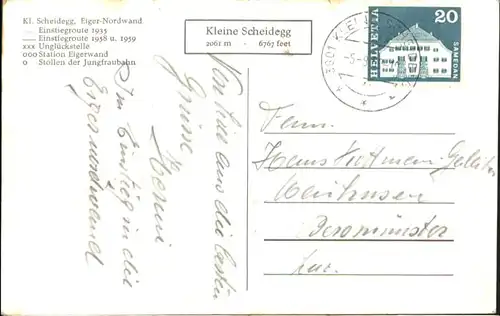 Kl. Scheidegg, Eiger-Nordwand
Einstiegroute 1935
Einstiegroute 1938 u. 1959
xxx Unglückstelle
ooo Station Eigerwand
o Stollen der Jungfraubahn
Kleine Scheidegg
2061 m - 6767 feet
3801
HELVETIA
20
SAMEDAN
Von hier aus die besten
Grüsse
Im Einstieg in die
Eigernordwand
Fam.
Hans
Neuhusen
Beromünster
Luz.